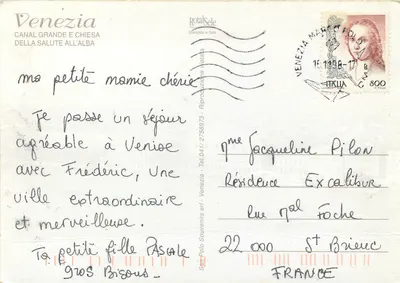 Venezia
CANAL GRANDE E CHIESA
DELLA SALUTE ALL'ALBA
ma petite mamie chérie,
Je passe un séjour
agréable à Venise
avec Frédéric, une
ville extraordinaire
et merveilleuse.
Ta petite fille PASCALE
gros Bisous
VENEZIA MARCO POLO
ITALIA 800
Mme Jacqueline Pilon
Résidence Excalibur
Rue Mal Foche
22000 St Brieuc
FRANCE